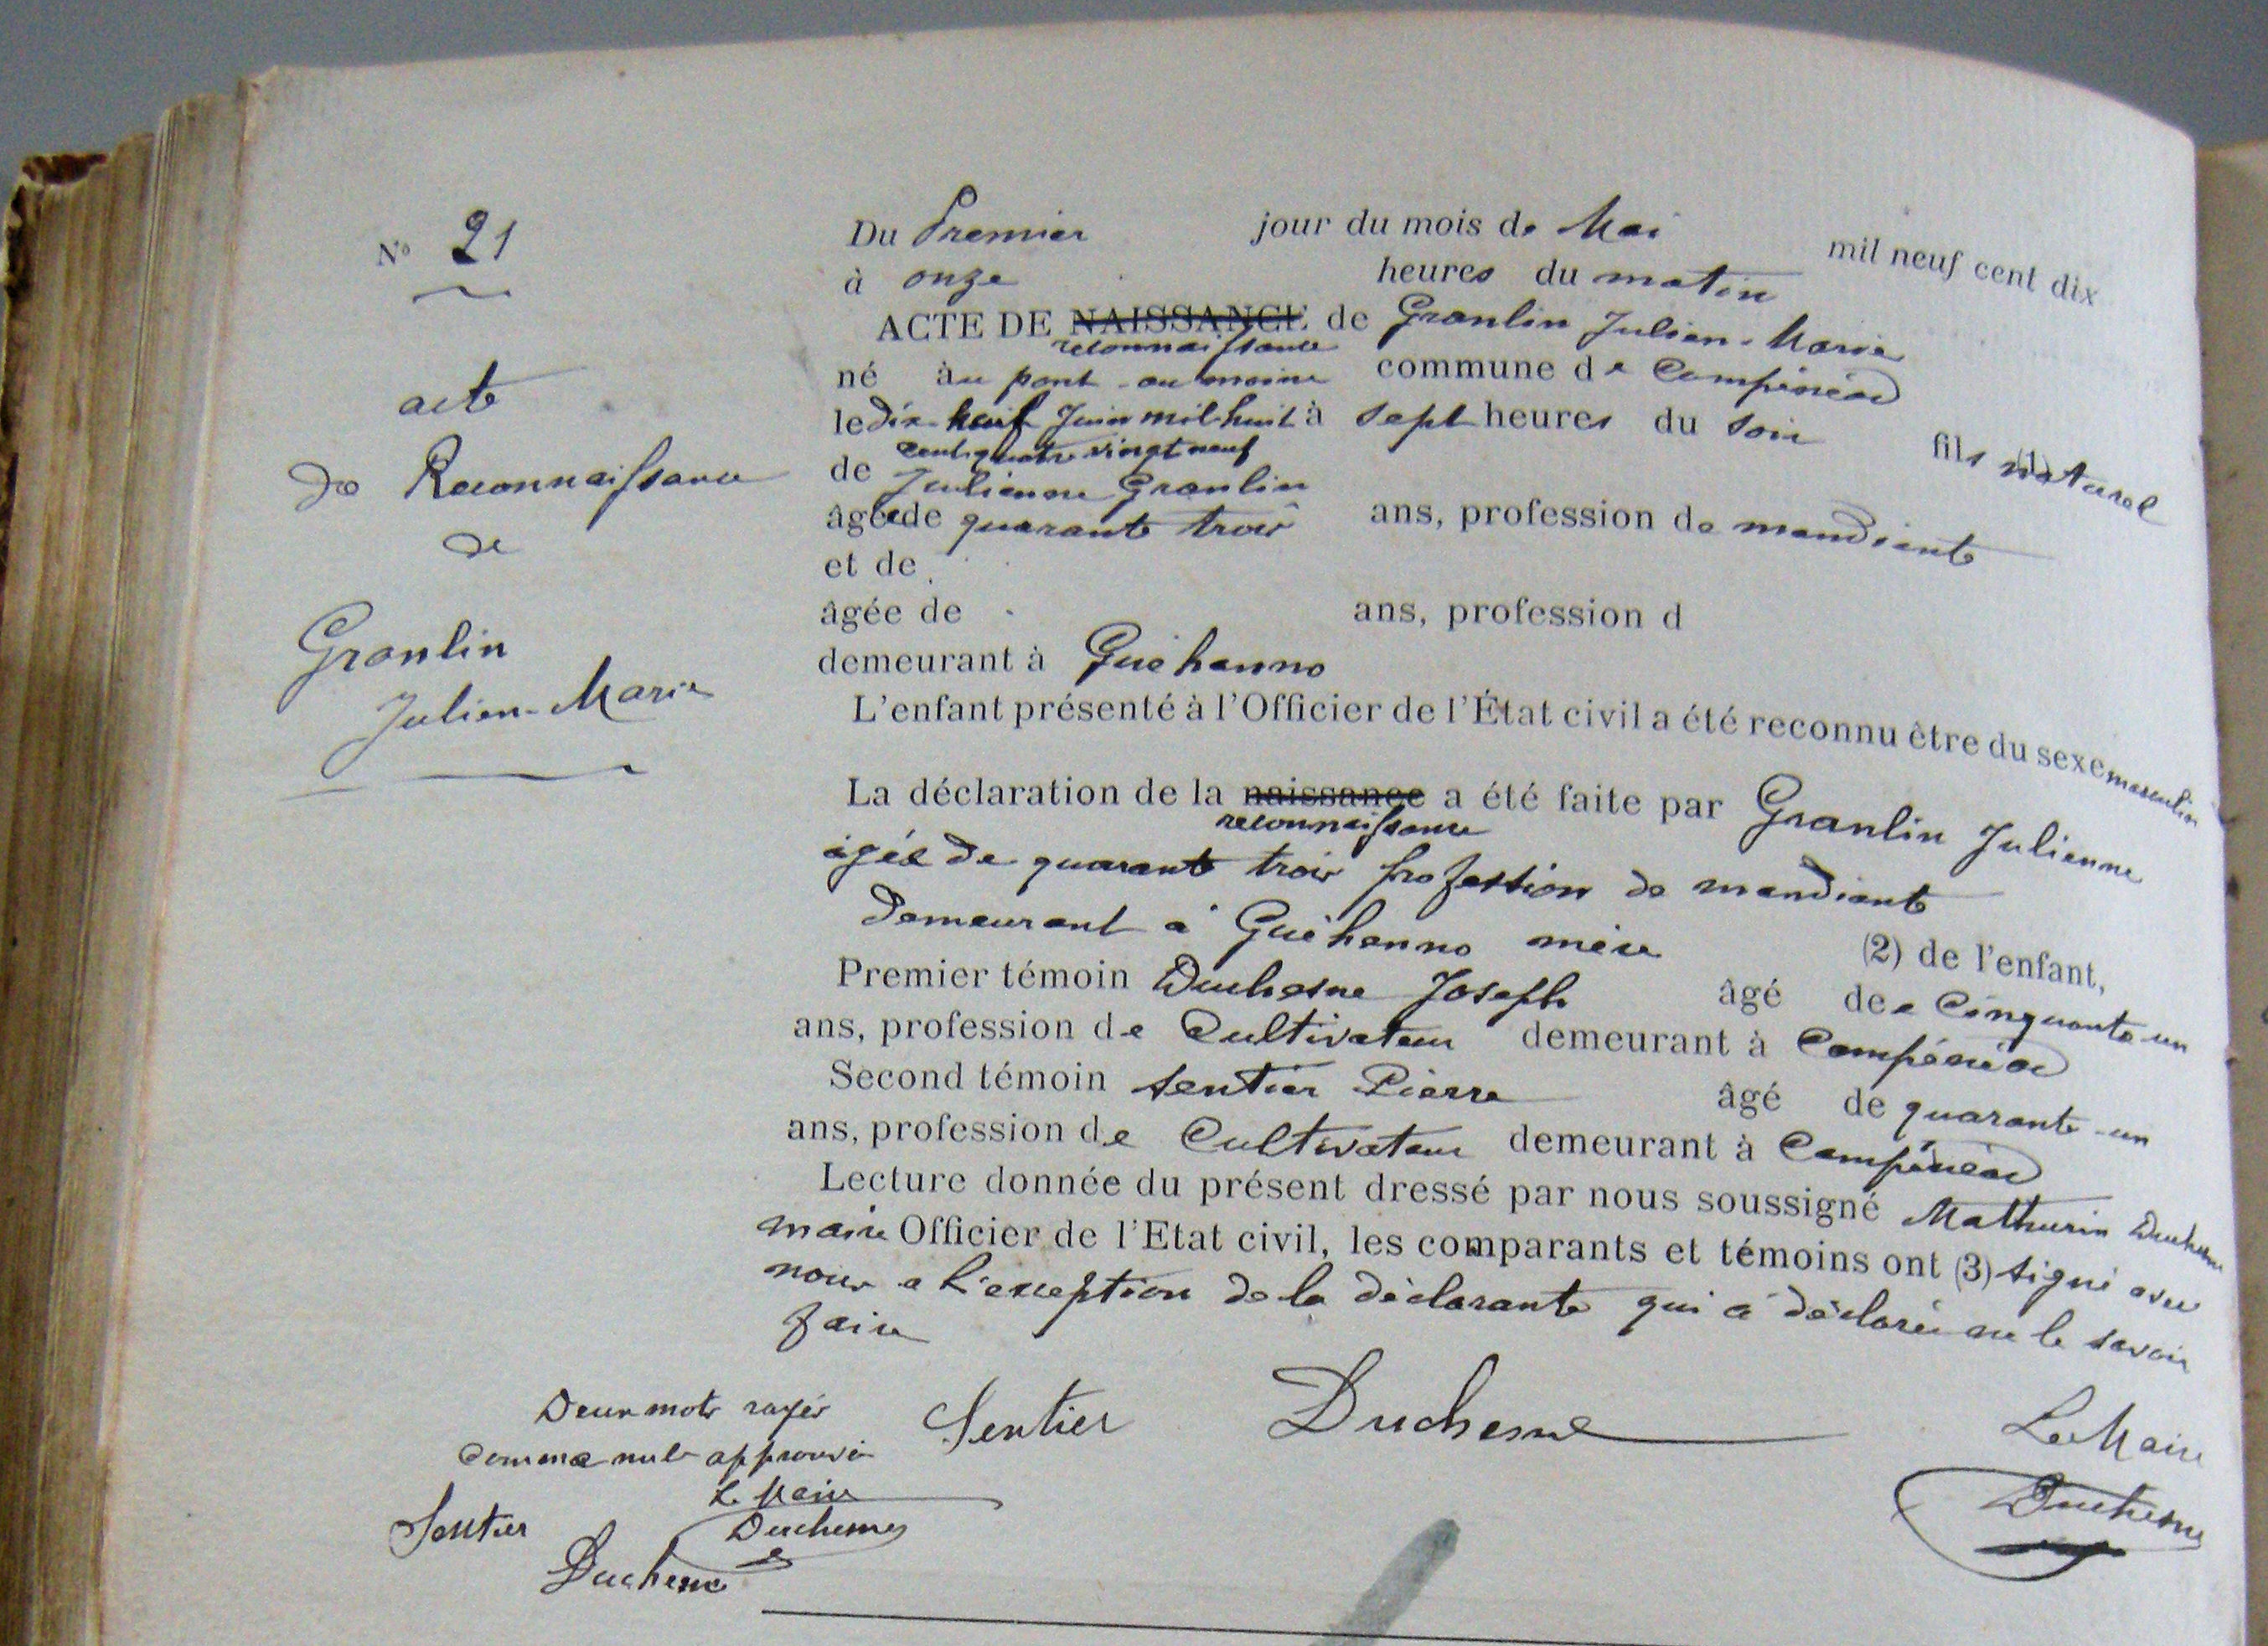 N° 21
acte
de Reconnaissance
de
Granlin
Julien-Marie
Du Premier jour du mois de Mai mil neuf cent dix
à onze heures du matin
ACTE DE NAISSANCE de Granlin Julien-Marie
reconnaissance
né àu pont-au moine commune de Campénéac
le dix-huit Juin mil-huit à sept heures du soir fils (1) naturel
cent quatre vingt neuf
de Julienne Granlin
âgée de quarante trois ans, profession de mandiante
et de
âgée de ans, profession d
demeurant à Guéhanno
L'enfant présenté à l'Officier de l'État civil a été reconnu être du sexe masculin
La déclaration de la naissance a été faite par Granlin Julienne
reconnaissance
âgée de quarante trois profession de mandiante
demeurant à Guéhanno mère (2) de l'enfant,
Premier témoin Duchesne Joseph âgé de Cinquante-un
ans, profession de Cultivateur demeurant à Campénéac
Second témoin Sentier Pierre âgé de quarante-un
ans, profession de Cultivateur demeurant à Campénéac
Lecture donnée du présent dressé par nous soussigné Mathurin Duchesne
maire Officier de l'Etat civil, les comparants et témoins ont (3) signé avec
nous a l'exception de la déclarante qui a déclaré ne le savoir
faire
Deux mots rayés
comme nuls approuvé
Le Maire
Duchesne
Sentier
Duchesne
Sentier Duchesne Le Maire
Duchesne